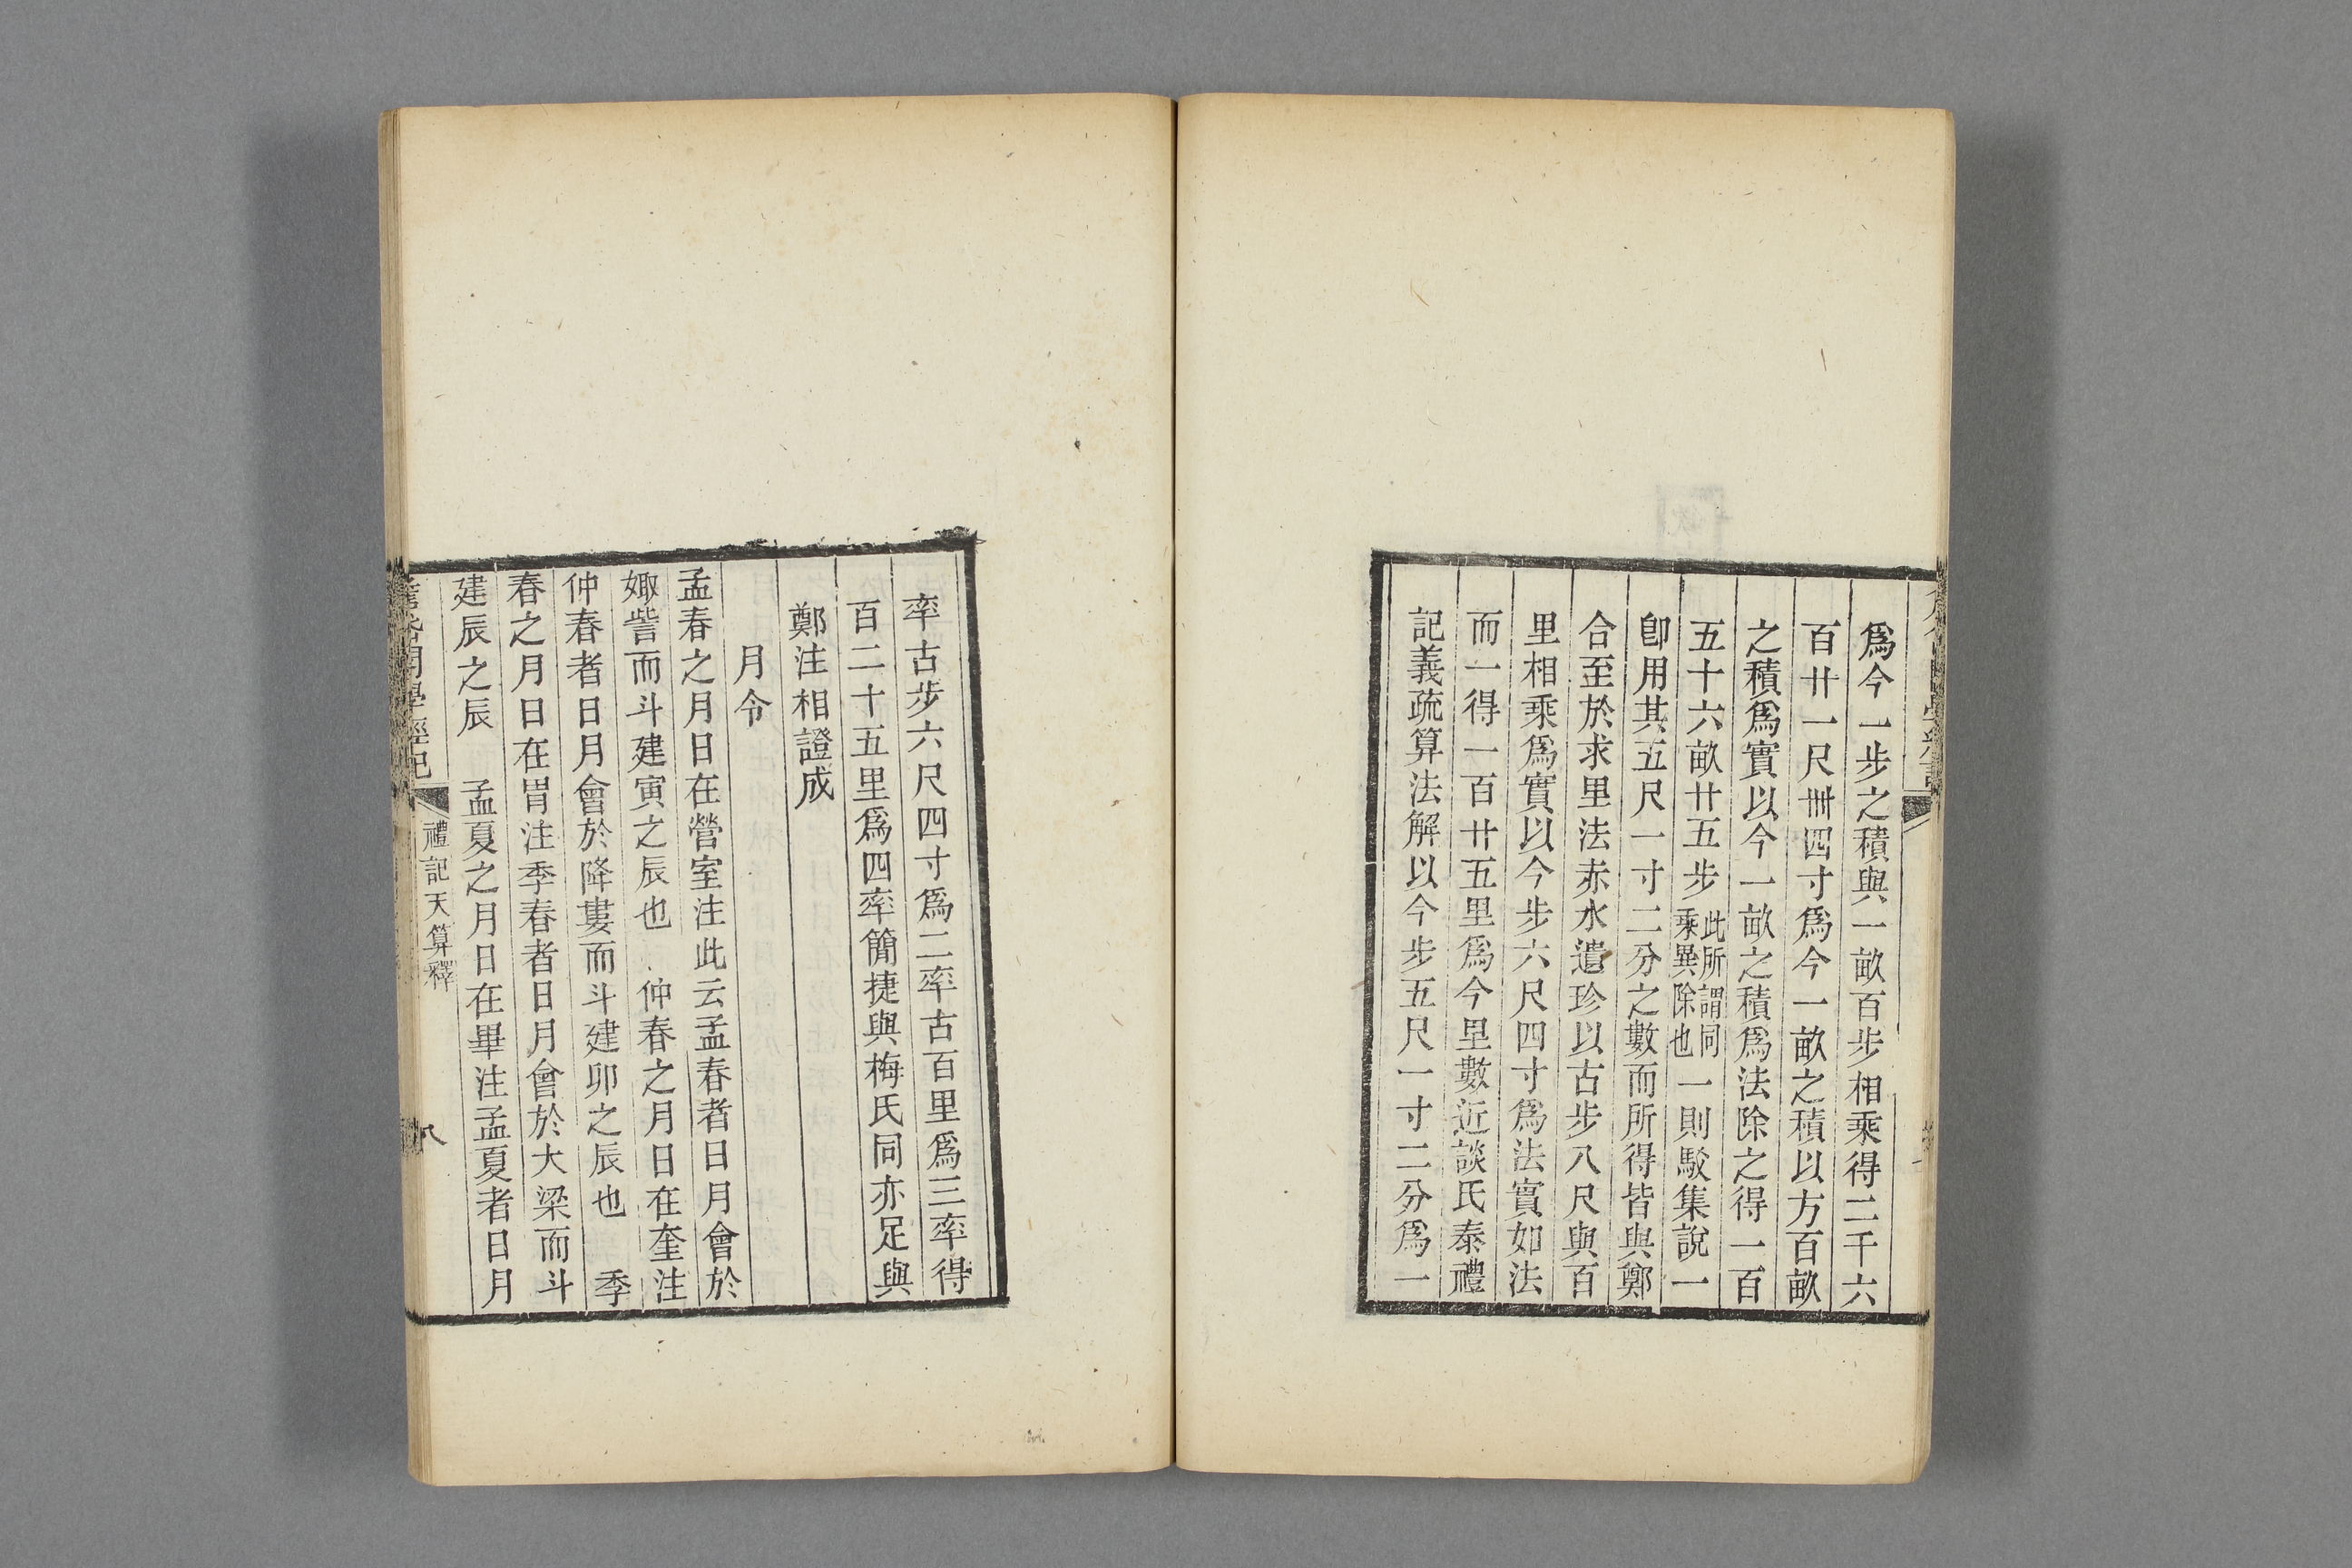 爲今一步之積與一畝百步相乘得二千六
百廿一尺卌四寸爲今一畝之積以方百畝
之積爲實以今一畝之積爲法除之得一百
五十六畝廿五步此所謂同乘異除也一則駁集說一
卽用其五尺一寸二分之數而所得皆與鄭
合至於求里法赤水遺珍以古步八尺與百
里相乘爲實以今步六尺四寸爲法實如法
而一得一百廿五里爲今里數近談氏泰禮
記義疏算法解以今步五尺一寸二分爲一
率古步六尺四寸爲二率古百里爲三率得
百二十五里爲四率簡捷與梅氏同亦足與
鄭注相證成
月令
孟春之月日在營室注此云孟春者日月會於
娵訾而斗建寅之辰也 仲春之月日在奎注
仲春者日月會於降婁而斗建卯之辰也 季
春之月日在胃注季春者日月會於大梁而斗
建辰之辰 孟夏之月日在畢注孟夏者日月
禮記天算釋
八